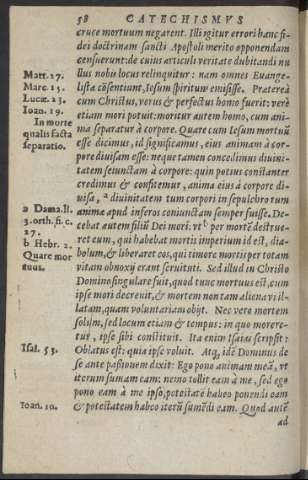 58 CATECHISMVS
cruce mortuum negarent. Illi igitur errori hanc fi-
dei doctrinam sancti Apostoli merito opponendam
censuerunt: de cuius articuli veritate dubitandi nu
Matt. 27.
llus nobis locus relinquitur: nam omnes Euange-
Marc. 15.
listæ cōsentiunt, Iesum spiritum emisisse. Prætereà
Lucæ. 23.
cum Christus, verus & perfectus homo fuerit: verè
Ioan. 19.
etiam mori potuit: moritur autem homo, cum ani-
In morte
ma separatur à corpore. Quare cum Iesum mortuū
qualis facta
esse dicimus, id significamus, eius animam à cor-
separatio.
pore diuisam esse: neque tamen concedimus diuini-
tatem seiunctam à corpore: quin potius constanter
credimus & confitemur, anima eius à corpore di-
uisa, a diuinitatem tum corpori in sepulcro tum
a Dama. li.
anima apud inferos coniunctam semper fuisse. De-
3. orth. fi. c.
cebat autem filiū Dei mori. vt b per mortē destrue-
27.
ret eum, qui habebat mortis imperium id est, dia-
b Hebr. 2.
bolum, & liberaret eos, qui timore mortis per totam
Quare mor
vitam obnoxij erant seruituti. Sed illud in Christo
tuus.
Domino singulare fuit, quod tunc mortuus est, cum
ipse mori decreuit, & mortem non tam aliena vi il-
latam, quam voluntariam obijt. Nec vero mortem
solùm, sed locum etiam & tempus: in quo morere-
tur, ipse sibi constituit. Ita enim Isaias scripsit:
Isai. 53.
Oblatus est: quia ipse voluit. Atq, idē Dominus de
se ante passionem dixit: Ego pono animam meā, vt
iterum sumam eam: nemo tollit eam à me, sed ego
pono eam à me ipso, potestatē habeo ponendi eam
Ioan. 10.
& potestatem habeo iterū sumēdi eam. Quod autē
ad